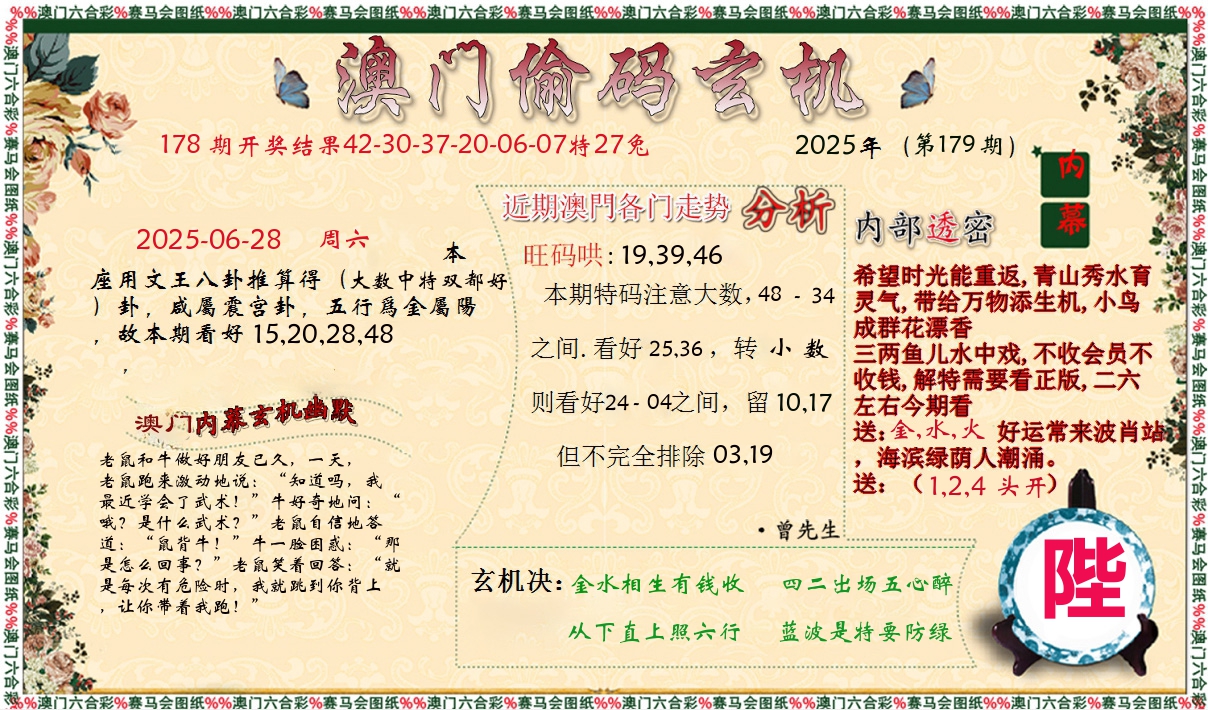 %%澳门六合彩%赛马会图纸%%澳门六合彩%赛马会图纸%%澳门六合彩%赛马会图纸%%澳门六合彩%赛马会图纸%%澳门六合彩%赛马会图纸%%澳门六合彩%赛马会图纸%%澳门六合彩%赛马会图纸%%
澳门偷码玄机
178 期开奖结果42-30-37-20-06-07特27兔
2025年（第179期）
内
幕
2025-06-28 周六
本
座用文王八卦推算得（大数中特双都好
）卦，咸屬震宫卦，五行爲金屬陽
，故本期看好 15,20,28,48
，
澳门内幕玄机幽默
老鼠和牛做好朋友已久，一天，
老鼠跑来激动地说：“知道吗，我
最近学会了武术！”牛好奇地问：“
哦？是什么武术？”老鼠自信地答
道：“鼠背牛！”牛一脸困惑：“那
是怎么回事？”老鼠笑着回答：“就
是每次有危险时，我就跳到你背上
，让你带着我跑！”
近期澳門各门走势 分析
旺码哄: 19,39,46
本期特码注意大数, 48 - 34
之间. 看好 25,36 ，转 小 数
则看好24 - 04之间，留 10,17
但不完全排除 03,19
·曾先生
内部透密
希望时光能重返, 青山秀水育
灵气, 带给万物添生机, 小鸟
成群花漂香
三两鱼儿水中戏, 不收会员不
收钱, 解特需要看正版, 二六
左右今期看
送: 金,水,火 好运常来波肖站
，海滨绿荫人潮涌。
送：（1,2,4 头开）
玄机决: 金水相生有钱收 四二出场五心醉
从下直上照六行 蓝波是特要防绿
陛
%%澳门六合彩%赛马会图纸%%澳门六合彩%赛马会图纸%%澳门六合彩%赛马会图纸%%澳门六合彩%赛马会图纸%%澳门六合彩%赛马会图纸%%澳门六合彩%赛马会图纸%%澳门六合彩%赛马会图纸%%